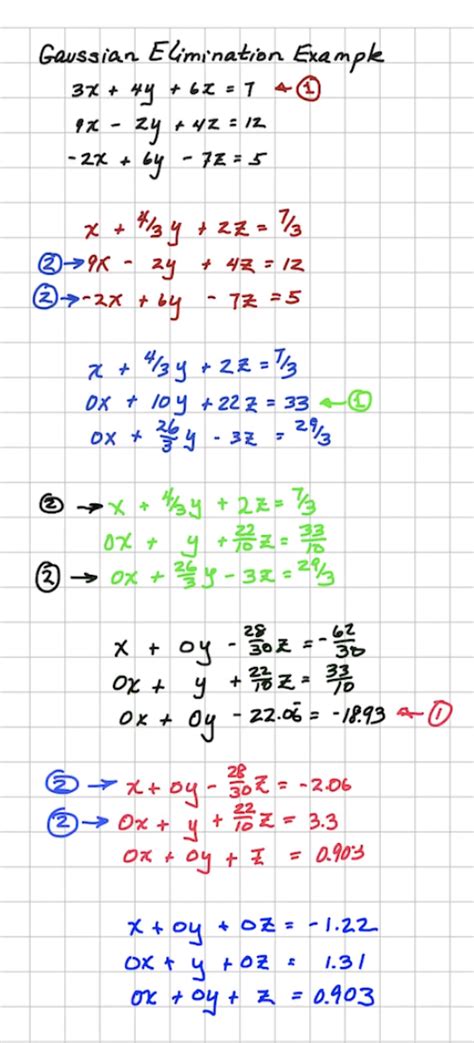 Gaussian Elimination Example
3x + 4y + 6z = 7 ← ①
9x - 2y + 4z = 12
-2x + 6y - 7z = 5
x + 4/3 y + 2z = 7/3
② → 9x - 2y + 4z = 12
② → -2x + 6y - 7z = 5
x + 4/3 y + 2z = 7/3
0x + 10y + 22z = 33 ← ①
0x + 26/3 y - 3z = 29/3
② → x + 4/3 y + 2z = 7/3
0x + y + 22/10 z = 33/10
② → 0x + 26/3 y - 3z = 29/3
x + 0y - 28/30 z = - 62/30
0x + y + 22/10 z = 33/10
0x + 0y - 22.06 = -18.93 ← ①
② → x + 0y - 28/30 z = -2.06
② → 0x + y + 22/10 z = 3.3
0x + 0y + z = 0.903
x + 0y + 0z = -1.22
0x + y + 0z = 1.31
0x + 0y + z = 0.903